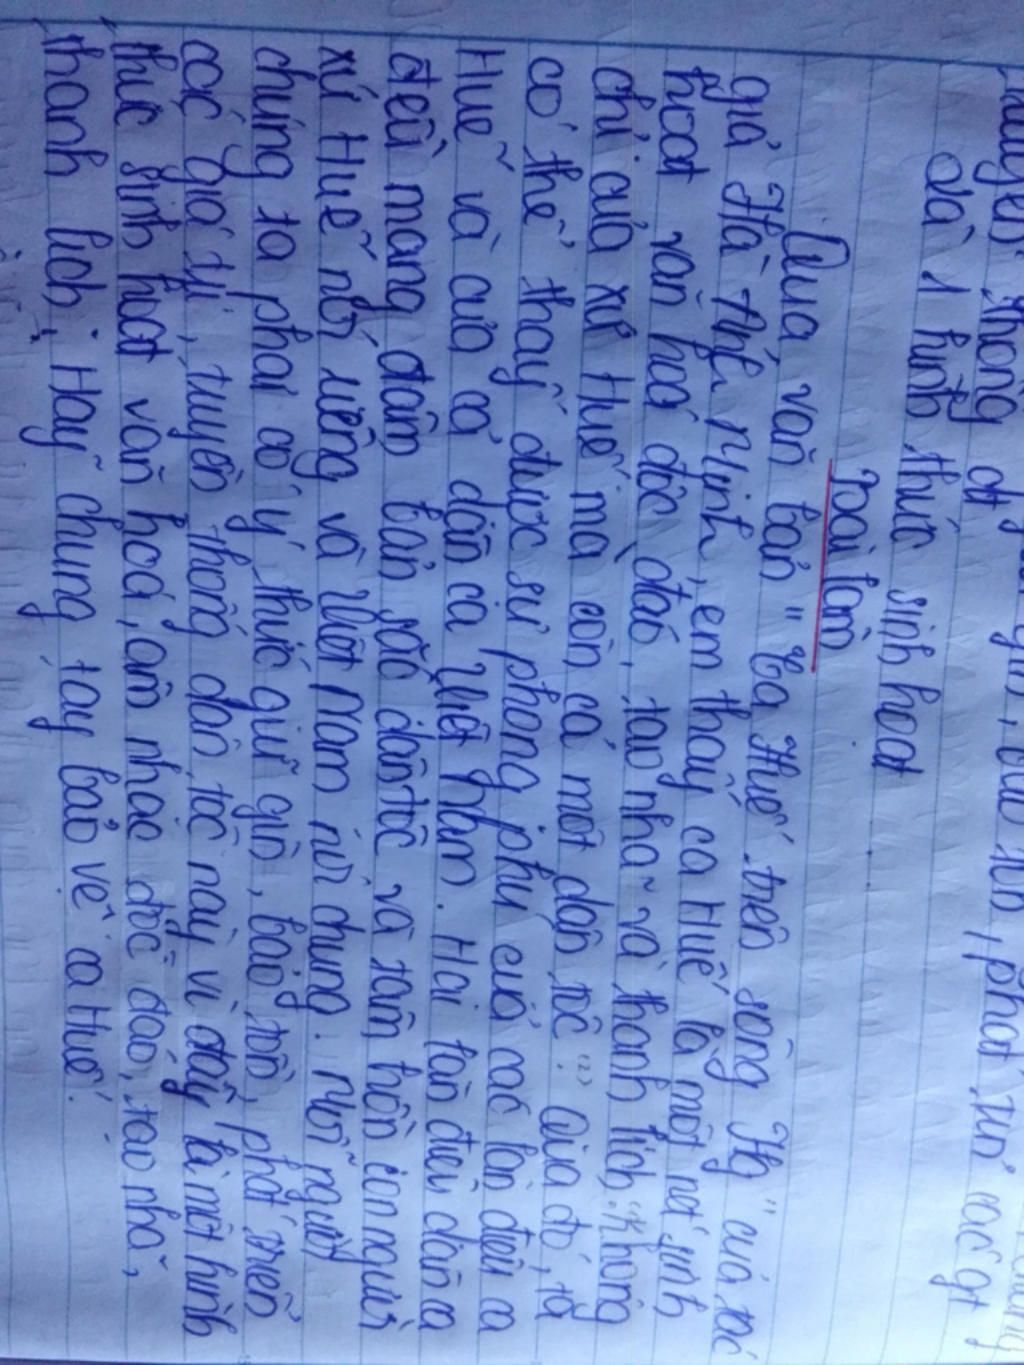 truyền thống
là 1 hình thức sinh hoạt
Bài làm
Qua văn bản "Ca Huế trên sông Hg" của tác
giả Hà Ánh Minh, em thấy ca Huế là một nét sinh
hoạt văn hoá độc đáo, tao nhã và thanh lịch "không
chỉ của xứ Huế mà còn cả một dân tộc" (2) Qua đó, ta
có thể thấy được sự phong phú của các làn điệu ca
Huế và của cả dân ca Việt Nam. Hai làn điệu dân ca
đều mang đậm bản sắc dân tộc và tâm hồn con người
xứ Huế nói riêng và Việt Nam nói chung. Mỗi người
chúng ta phải có ý thức giữ gìn, bảo tồn, phát triển
các giá trị truyền thống dân tộc này vì đây là một hình
thức sinh hoạt văn hoá, âm nhạc độc đáo, tao nhã,
thanh lịch. Hãy chung tay bảo vệ ca Huế.